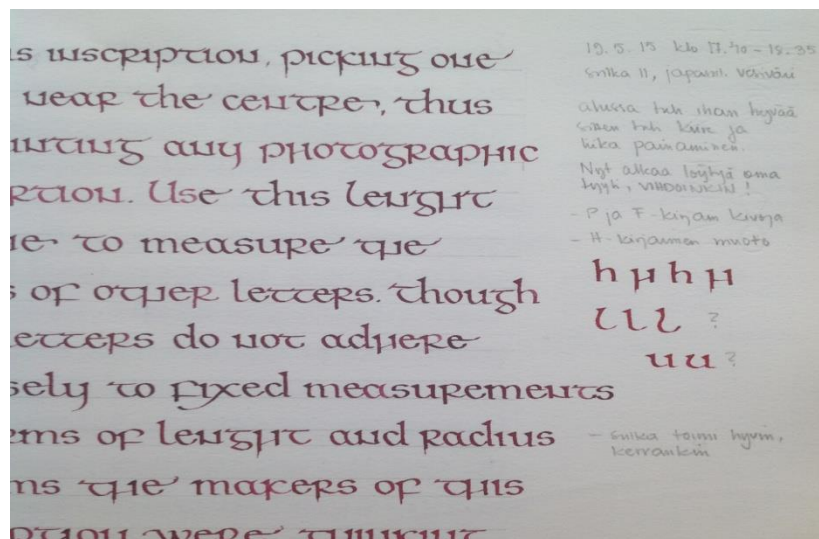 s inscription, picking one
near the centre, thus
nting any photographic
ption. Use this lenght
e to measure the
s of other letters. Though
etters do not adhere
sely to fixed measurements
ems of lenght and radius
ms the makers of this
ption were
klo 17.40 - 19.35
sulka II, japanil. vesiväri
alussa tuli ihan hyvää
sitten tuli kiire ja
liika painaminen.
Nyt alkaa löytyä oma
tyyli, VIHDOINKIN!
- P ja F-kirjain kivoja
- H-kirjaimen muoto
h h h h
l l l ?
u u ?
- sulka toimii hyvin,
kerrankin